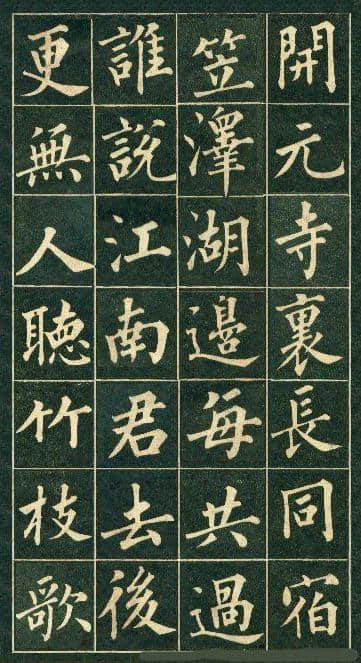 開元寺裏長同宿
笠澤湖邉每共過
誰說江南君去後
更無人聽竹枝歌